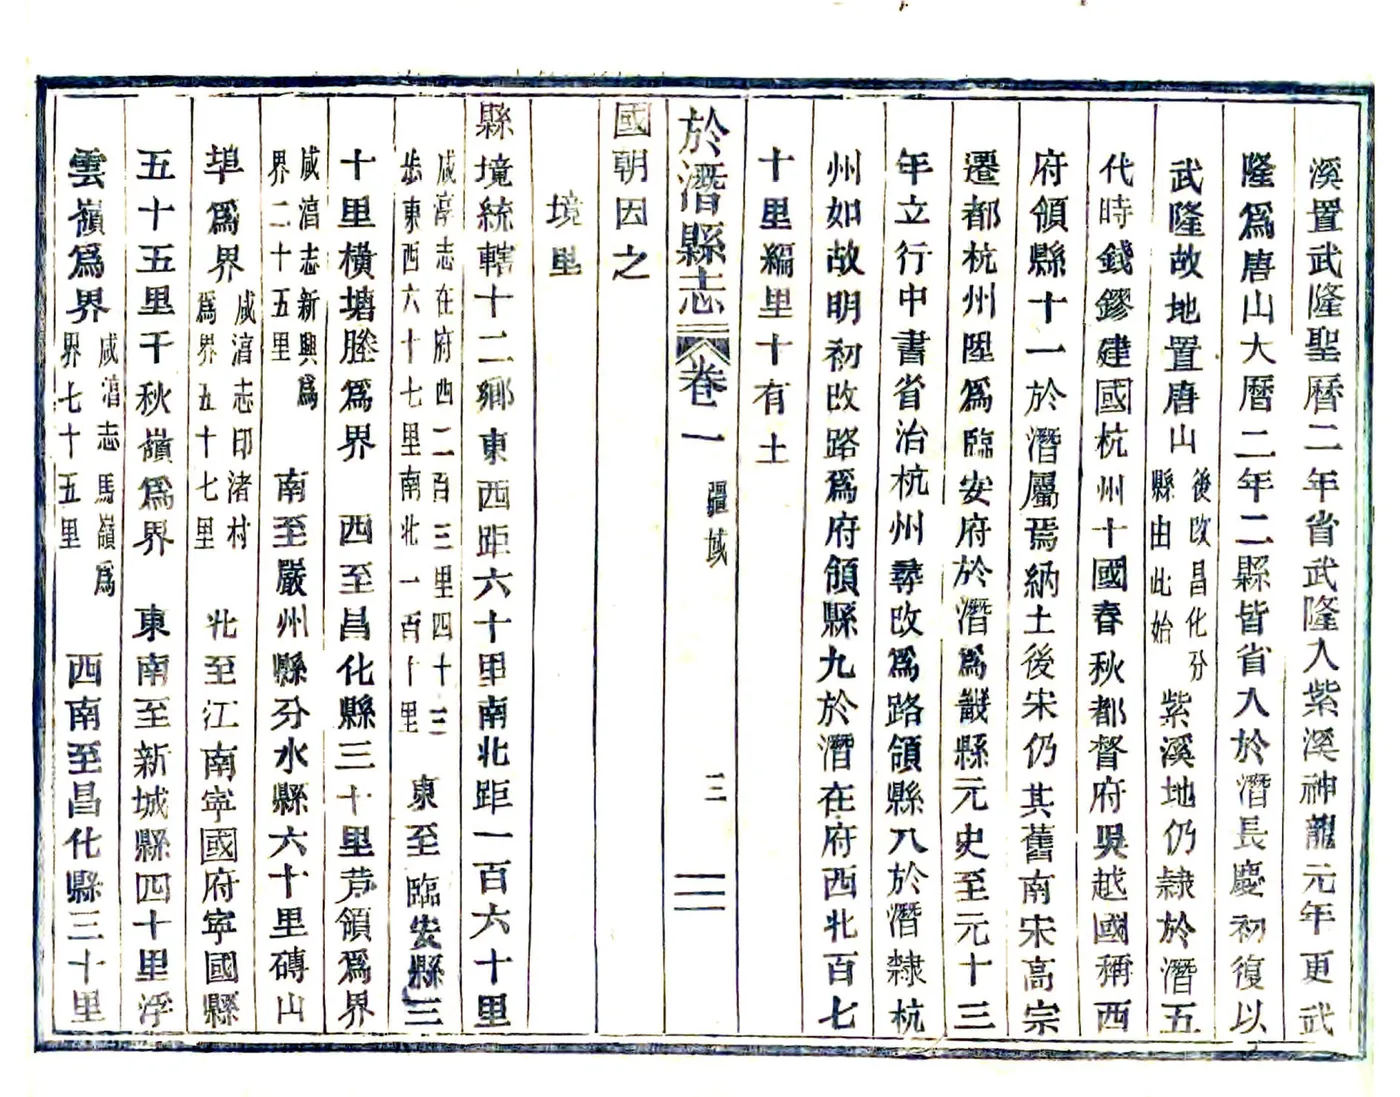 溪置武隆聖曆二年省武隆入紫溪神龍元年更武
隆爲唐山大曆二年二縣皆省入於潛長慶初復以
武隆故地置唐山
後改昌化分
縣由此始
紫溪地仍隸於潛五
代時錢鏐建國杭州十國春秋都督府吳越國稱西
府領縣十一於潛屬焉納土後宋仍其舊南宋高宗
遷都杭州陞爲臨安府於潛爲畿縣元史至元十三
年立行中書省治杭州尋改爲路領縣八於潛隸杭
州如故明初改路爲府領縣九於潛在府西北百七
十里編里十有土
於潛縣志
卷一
疆域
三
國朝因之
境里
縣境統轄十二鄉東西距六十里南北距一百六十里
咸淳志在府西二百三里四十三
步東西六十七里南北一百十里
東至臨安縣三
十里橫塘塍爲界
西至昌化縣三十里芦領爲界
咸淳志新興爲
界二十五里
南至嚴州縣分水縣六十里磚山
埠爲界
咸淳志印渚村
爲界五十七里
北至江南寧國府寧國縣
五十五里千秋嶺爲界
東南至新城縣四十里浮
雲嶺爲界
咸淳志馬嶺爲
界七十五里
西南至昌化縣三十里